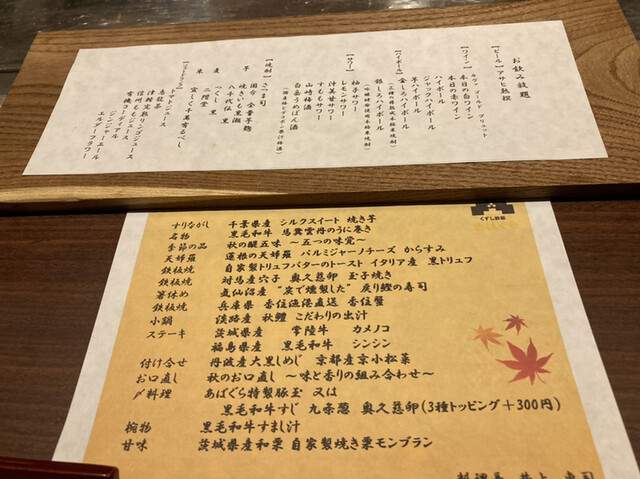 お飲み放題
【ビール】アサヒ熟撰
【ワイン】
本日の白ワイン
本日の赤ワイン
【ハイボール】
ハイボール
ジャックハイボール
芋ハイボール
金しろハイボール
銀しろハイボール
【サワー】
柚子サワー
レモンサワー
沖美甘サワー
すももサワー
山崎梅酒
白岳うめぽん酒
【焼酎】さつま司
芋
国分 金薫芋麹
焼きいも黒瀬
八千代伝 黒
麦
つくし 黒
二階堂
米
【ソフトドリンク】
トマトジュース
烏龍茶
津軽完熟リンゴジュース
信州ももジュース
くずし鉄板
すりながし 千葉県産 シルクスイート 焼き芋
名物 黒毛和牛 馬糞雲丹のうに巻き
季節の品 秋の醍五味 ～五つの味覚～
天婦羅 蓮根の天婦羅 パルミジャーノチーズ からすみ
鉄板焼 自家製トリュフバターのトースト イタリア産 黒トリュフ
鉄板焼 対馬産穴子 奥久慈卵 玉子焼き
箸休め 気仙沼産 “炭で燻製した” 戻り鰹の寿司
鉄板焼 兵庫県 香住漁港直送 香住蟹
小鍋 淡路産 秋鱧 こだわりの出汁
ステーキ 茨城県産 常陸牛 カメノコ
福島県産 黒毛和牛 シンシン
付け合せ 丹波産大黒しめじ 京都産京小松菜
お口直し 秋のお口直し ～味と香りの組み合わせ～
〆料理 あばぐら特製豚玉 又は
黒毛和牛すじ 九条葱 奥久慈卵(3種トッピング＋300円)
椀物 黒毛和牛すまし汁
甘味 茨城県産和栗 自家製焼き栗モンブラン